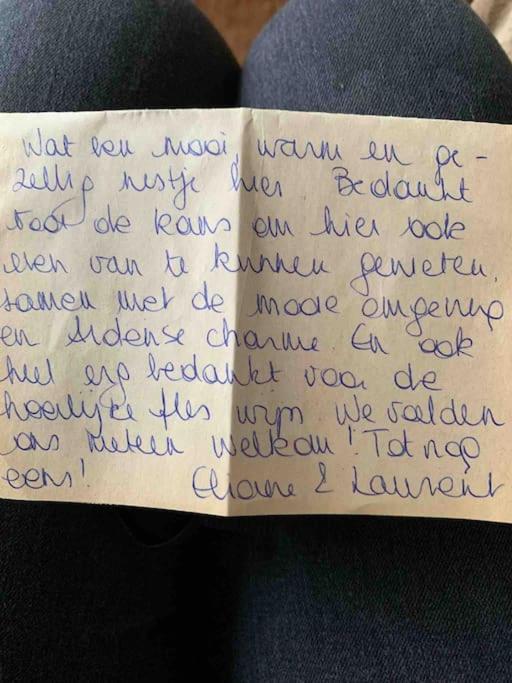 Wat een mooi, warm en ge-
zellig nestje hier Bedankt
voor de kans om hier ook
even van te kunnen genieten,
samen met de mooie omgeving
en Ardense charme. En ook
heel erg bedankt voor de
heerlijke fles wijn We voelden
ons meteen welkom! Tot nog
eens! Eliane & Laurent